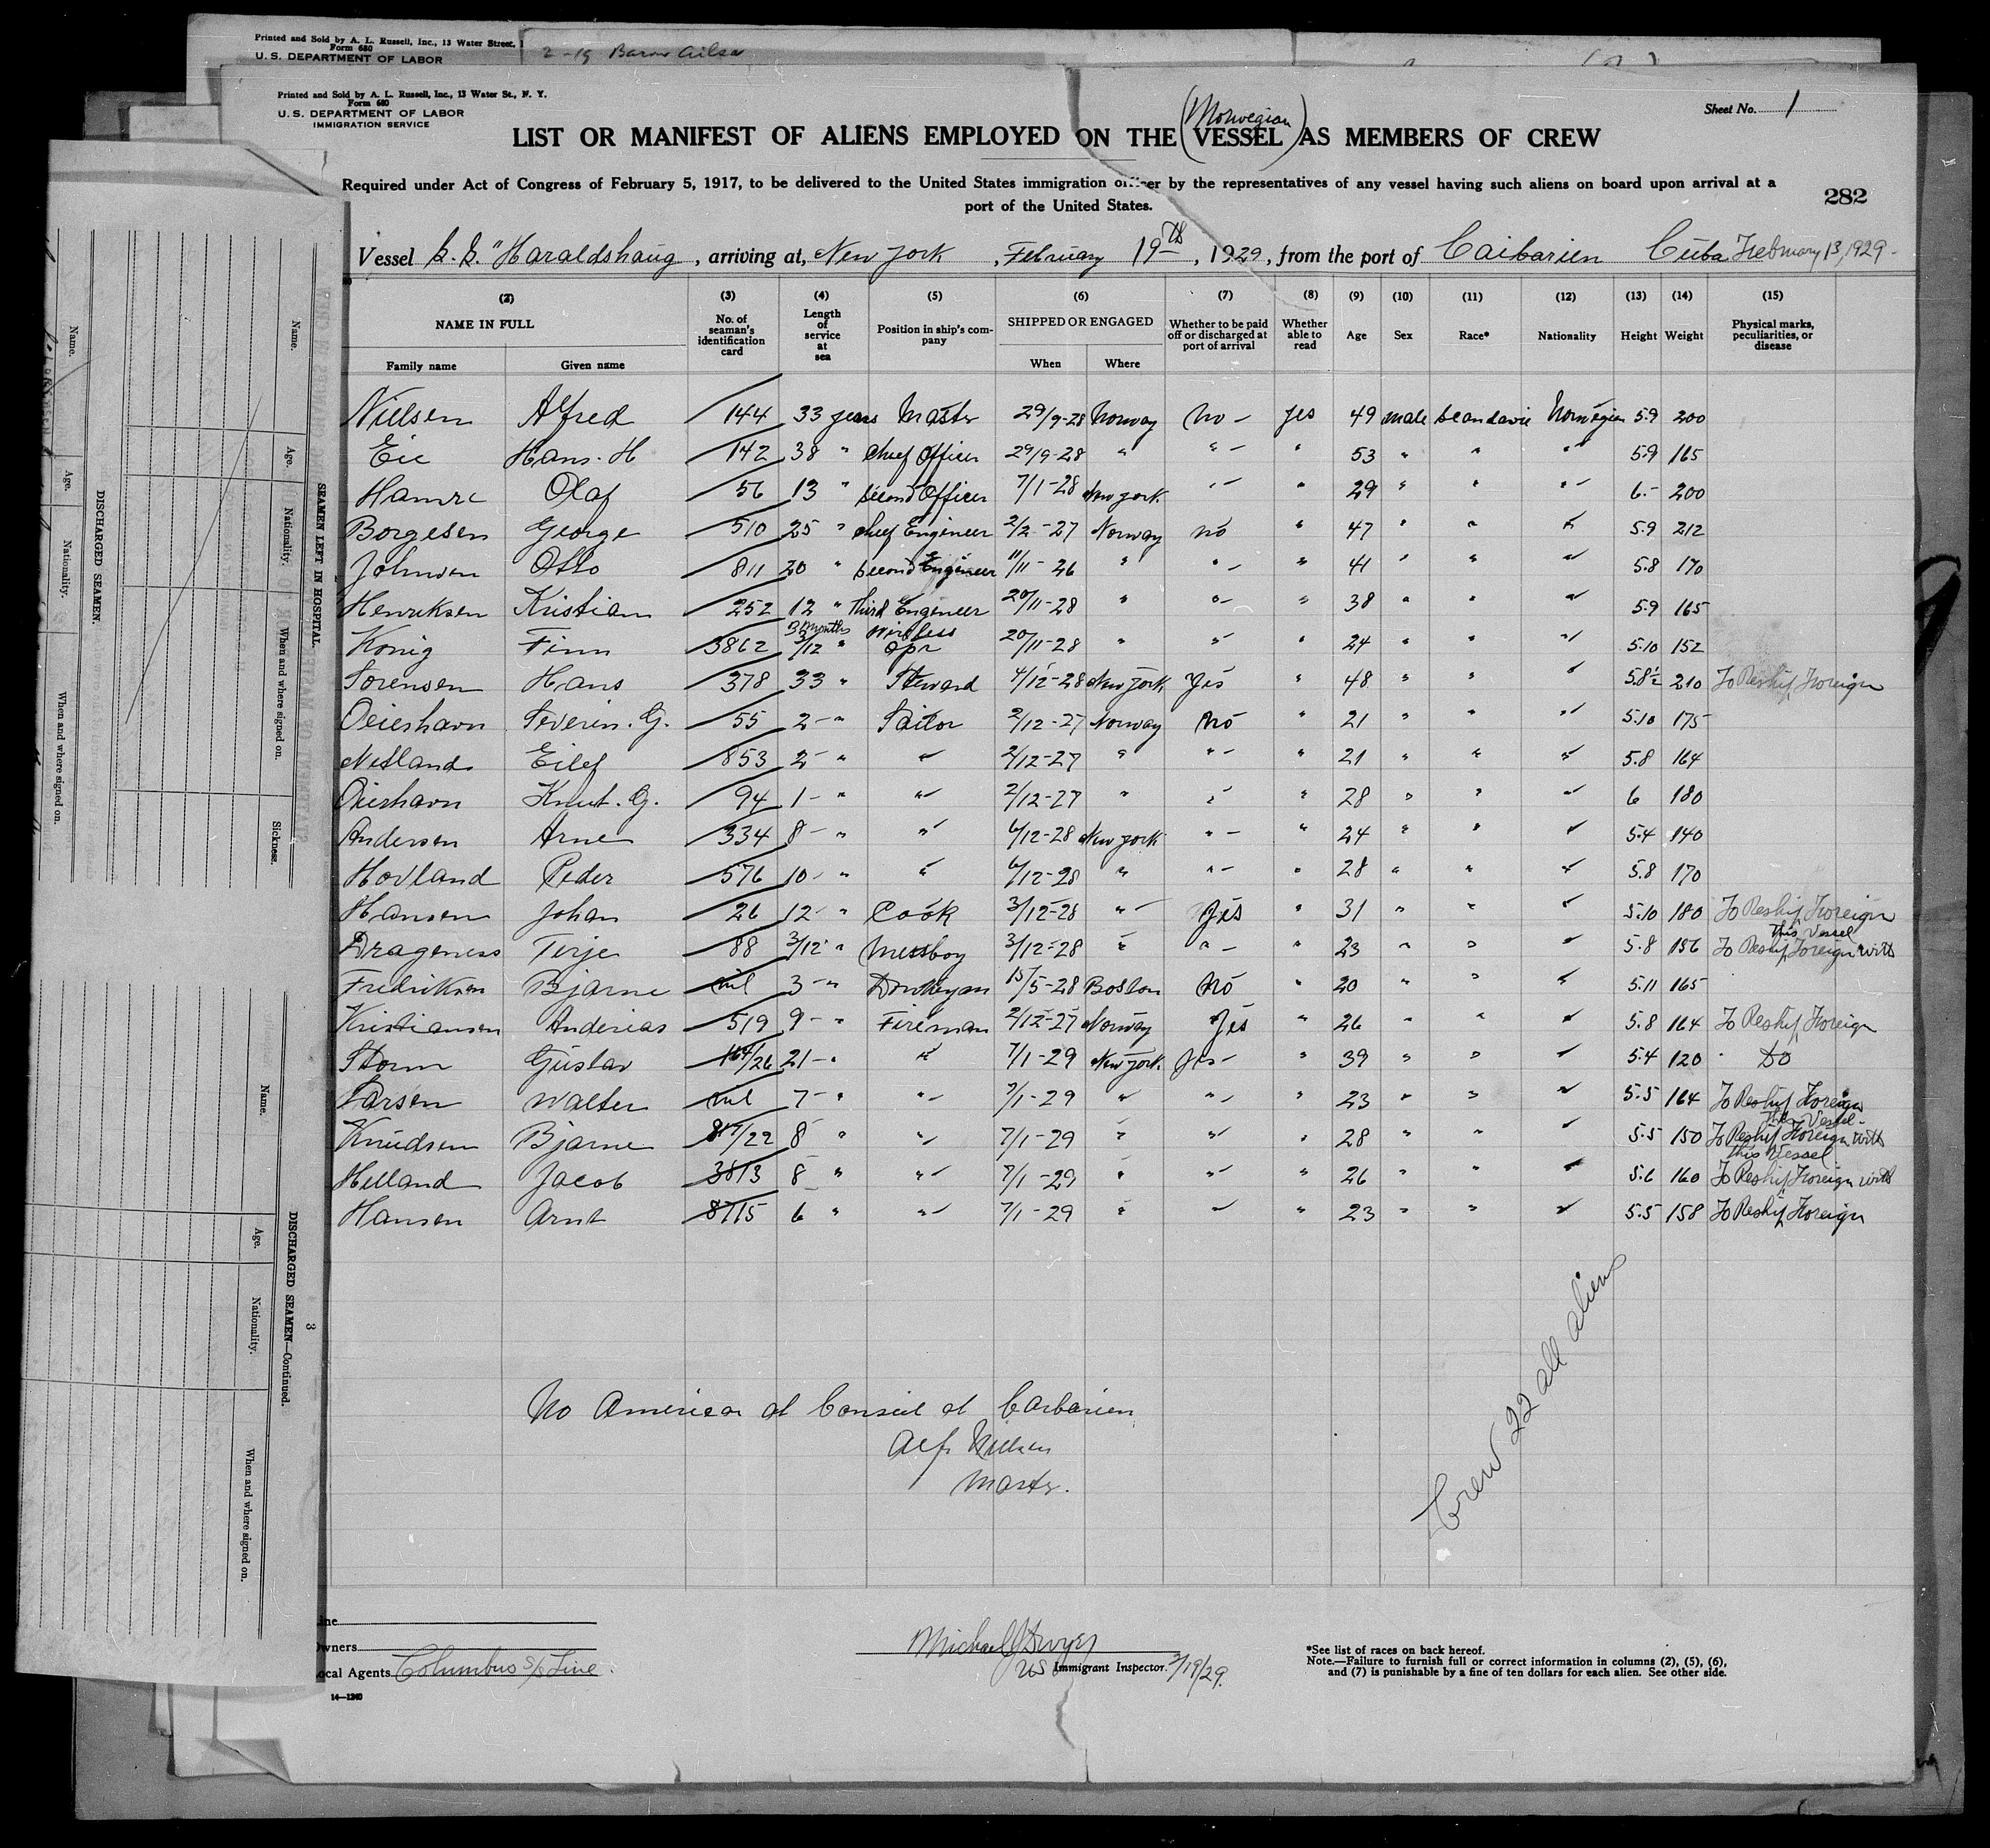 Printed and Sold by A. L. Russell, Inc., 13 Water Street,
Form 680
U. S. DEPARTMENT OF LABOR
2-19 Baron Ailsa
Printed and Sold by A. L. Russell, Inc., 13 Water St., N. Y.
Form 680
U. S. DEPARTMENT OF LABOR
IMMIGRATION SERVICE
Sheet No. 1
(Norwegian)
LIST OR MANIFEST OF ALIENS EMPLOYED ON THE VESSEL AS MEMBERS OF CREW
Required under Act of Congress of February 5, 1917, to be delivered to the United States immigration officer by the representatives of any vessel having such aliens on board upon arrival at a
port of the United States.
282
Vessel S.S. "Haraldshaug, arriving at, New York, February 19th, 1929, from the port of Caibarien Cuba February 13, 1929-
(2) (3) (4) (5) (6) (7) (8) (9) (10) (11) (12) (13) (14) (15)
NAME IN FULL No. of seaman's identification card Length of service at sea Position in ship's company SHIPPED OR ENGAGED Whether to be paid off or discharged at port of arrival Whether able to read Age Sex Race* Nationality Height Weight Physical marks, peculiarities, or disease
Family name Given name When Where
Nielsen Alfred 144 33 years Master 29/9-28 Norway No - yes 49 male Scandavic Norwegian 5.9 200
Eie Hans. H 142 38 " Chief Officer 29/9-28 " " - " 53 " " " 5.9 165
Hamre Olaf 56 13 " Second Officer 7/1-28 New York " - " 29 " " " 6.- 200
Borgesen George 510 25 " Chief Engineer 2/2-27 Norway No " 47 " " " 5.9 212
Johnsen Otto 811 20 " Second Engineer 11/11-26 " " - " 41 " " " 5.8 170
Henriksen Kristian 252 12 " Third Engineer 20/11-28 " " - " 38 " " " 5.9 165
Konig Finn 3862 3 months 3/12 " Wireless opr 20/11-28 " " " 24 " " " 5.10 152
Sorensen Hans 378 33 " Steward 4/12-28 New York Yes " 48 " " " 5.8½ 210 To Reship Foreign
Oeieshavn Severin. G. 55 2 - " Sailor 2/12-27 Norway No " 21 " " " 5.10 175
Netland Eilef 853 2 - " " 2/12-27 " " - " 21 " " " 5.8 164
Oieshavn Knut. G. 94 1 - " " 2/12-27 " " " 28 " " " 6 180
Andersen Arne 334 8 - " " 6/12-28 New York " - " 24 " " " 5.4 140
Hovland Peder 576 10 - " " 6/12-28 " " - " 28 " " " 5.8 170
Hansen Johan 26 12 - " Cook 3/12-28 " Yes " 31 " " " 5.10 180 To Reship Foreign
Drageness Terje 88 3/12 " Messboy 3/12-28 " " - " 23 " " " 5.8 156 To Reship Foreign with this Vessel
Fredriksen Bjarne nil 3 - " Donkeyman 15/5-28 Boston No " 20 " " " 5.11 165
Kristiansen Anderias 519 9 - " Fireman 2/12-27 Norway Yes " 26 " " " 5.8 164 To Reship Foreign
Storm Gustav 164/26 21 - " " 7/1-29 New York Yes - " 39 " " " 5.4 120 " Do
Larsen Walter nil 7 - " " 7/1-29 " " - " 23 " " " 5.5 164 To Reship Foreign
Knudsen Bjarne /22 8 " " 7/1-29 " " " 28 " " " 5.5 150 To Reship Foreign with this Vessel
Helland Jacob 3813 8 " " 7/1-29 " " " 26 " " " 5.6 160 To Reship Foreign with this Vessel
Hansen Arnt 8715 6 " " 7/1-29 " " " 23 " " " 5.5 158 To Reship Foreign
Crew 22 all aliens
No American at Consul at Caibarien
Alf Nielsen
Master.
Line
Owners
Local Agents Columbus S/S Line.
14-1240
Michael J Dwyer
US Immigrant Inspector. 2/19/29.
*See list of races on back hereof.
Note.—Failure to furnish full or correct information in columns (2), (5), (6),
and (7) is punishable by a fine of ten dollars for each alien. See other side.
SEAMEN LEFT IN HOSPITAL.
Name. Age. Nationality. When and where signed on. Sickness.
DISCHARGED SEAMEN.
Name. Age. Nationality. When and where signed on.
DISCHARGED SEAMEN—Continued.
Name. Age. Nationality. When and where signed on.
3